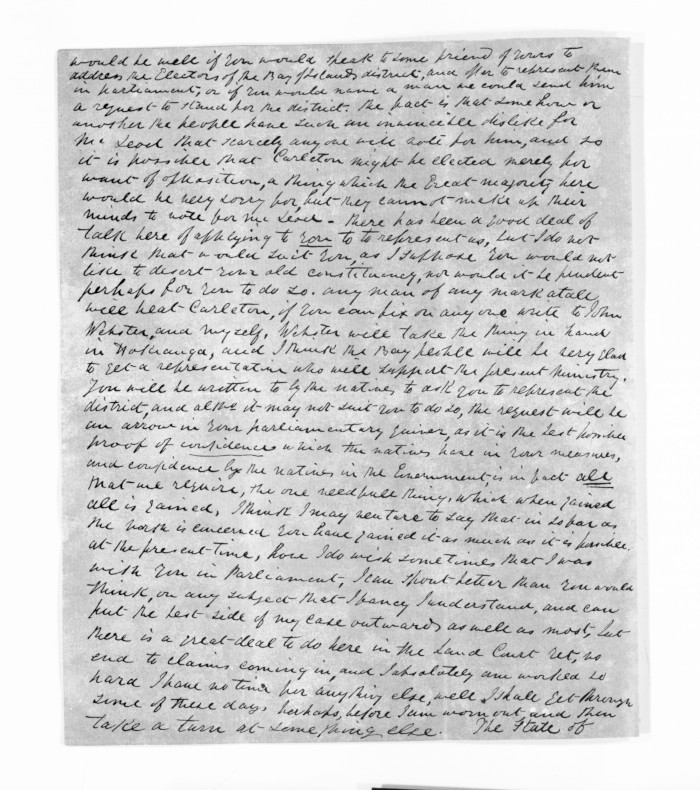 would be well if you would speak to some friend of yours to
address the Electors of the Bay of Islands district, and offer to represent them
in parliament, or if you would name a man we could send him
a request to stand for the district. The fact is that some how or
another the people have such an invincible dislike for
Mc Leod that scarcely any one will vote for him, and so
it is possible that Carleton might be elected merely for
want of opposition, a thing which the great majority here
would be very sorry for, but they cannot make up their
minds to vote for Mc Leod - There has been a good deal of
talk here of applying to you to to represent us, but I do not
think that would suit you, as I suppose you would not
like to desert your old constituency, nor would it be prudent
perhaps for you to do so. any man of any mark at all
will beat Carleton, if you can fix on any one write to John
Webster, and myself, Webster will take the thing in hand
in Hokianga, and I think the Bay people will be very glad
to get a representative who will support the present Ministry.
You will be written to by the natives to ask you to represent the
district, and altho it may not suit you to do so, the request will be
an arrow in your parliamentary quiver, as it is the best possible
proof of confidence which the natives have in your measures,
and confidence by the natives in the Government, is in fact all
that we require, the one needfull thing, which when gained
all is gained, I think I may venture to say that in so far as
the north is concerned you have gained it as much as it is possible
at the present time, how I do wish sometimes that I was
with you in Parliament, I can spout better than you would
think, on any subject that I fancy I understand, and can
put the best side of my case outwards as well as most, but
there is a great deal to do here in the Land Court yet, no
end to claims coming in, and I absolutely am worked so
hard I have no time for anything else, well I shall get through
some of these days perhaps, before I am worn out and then
take a turn at something else. The State of